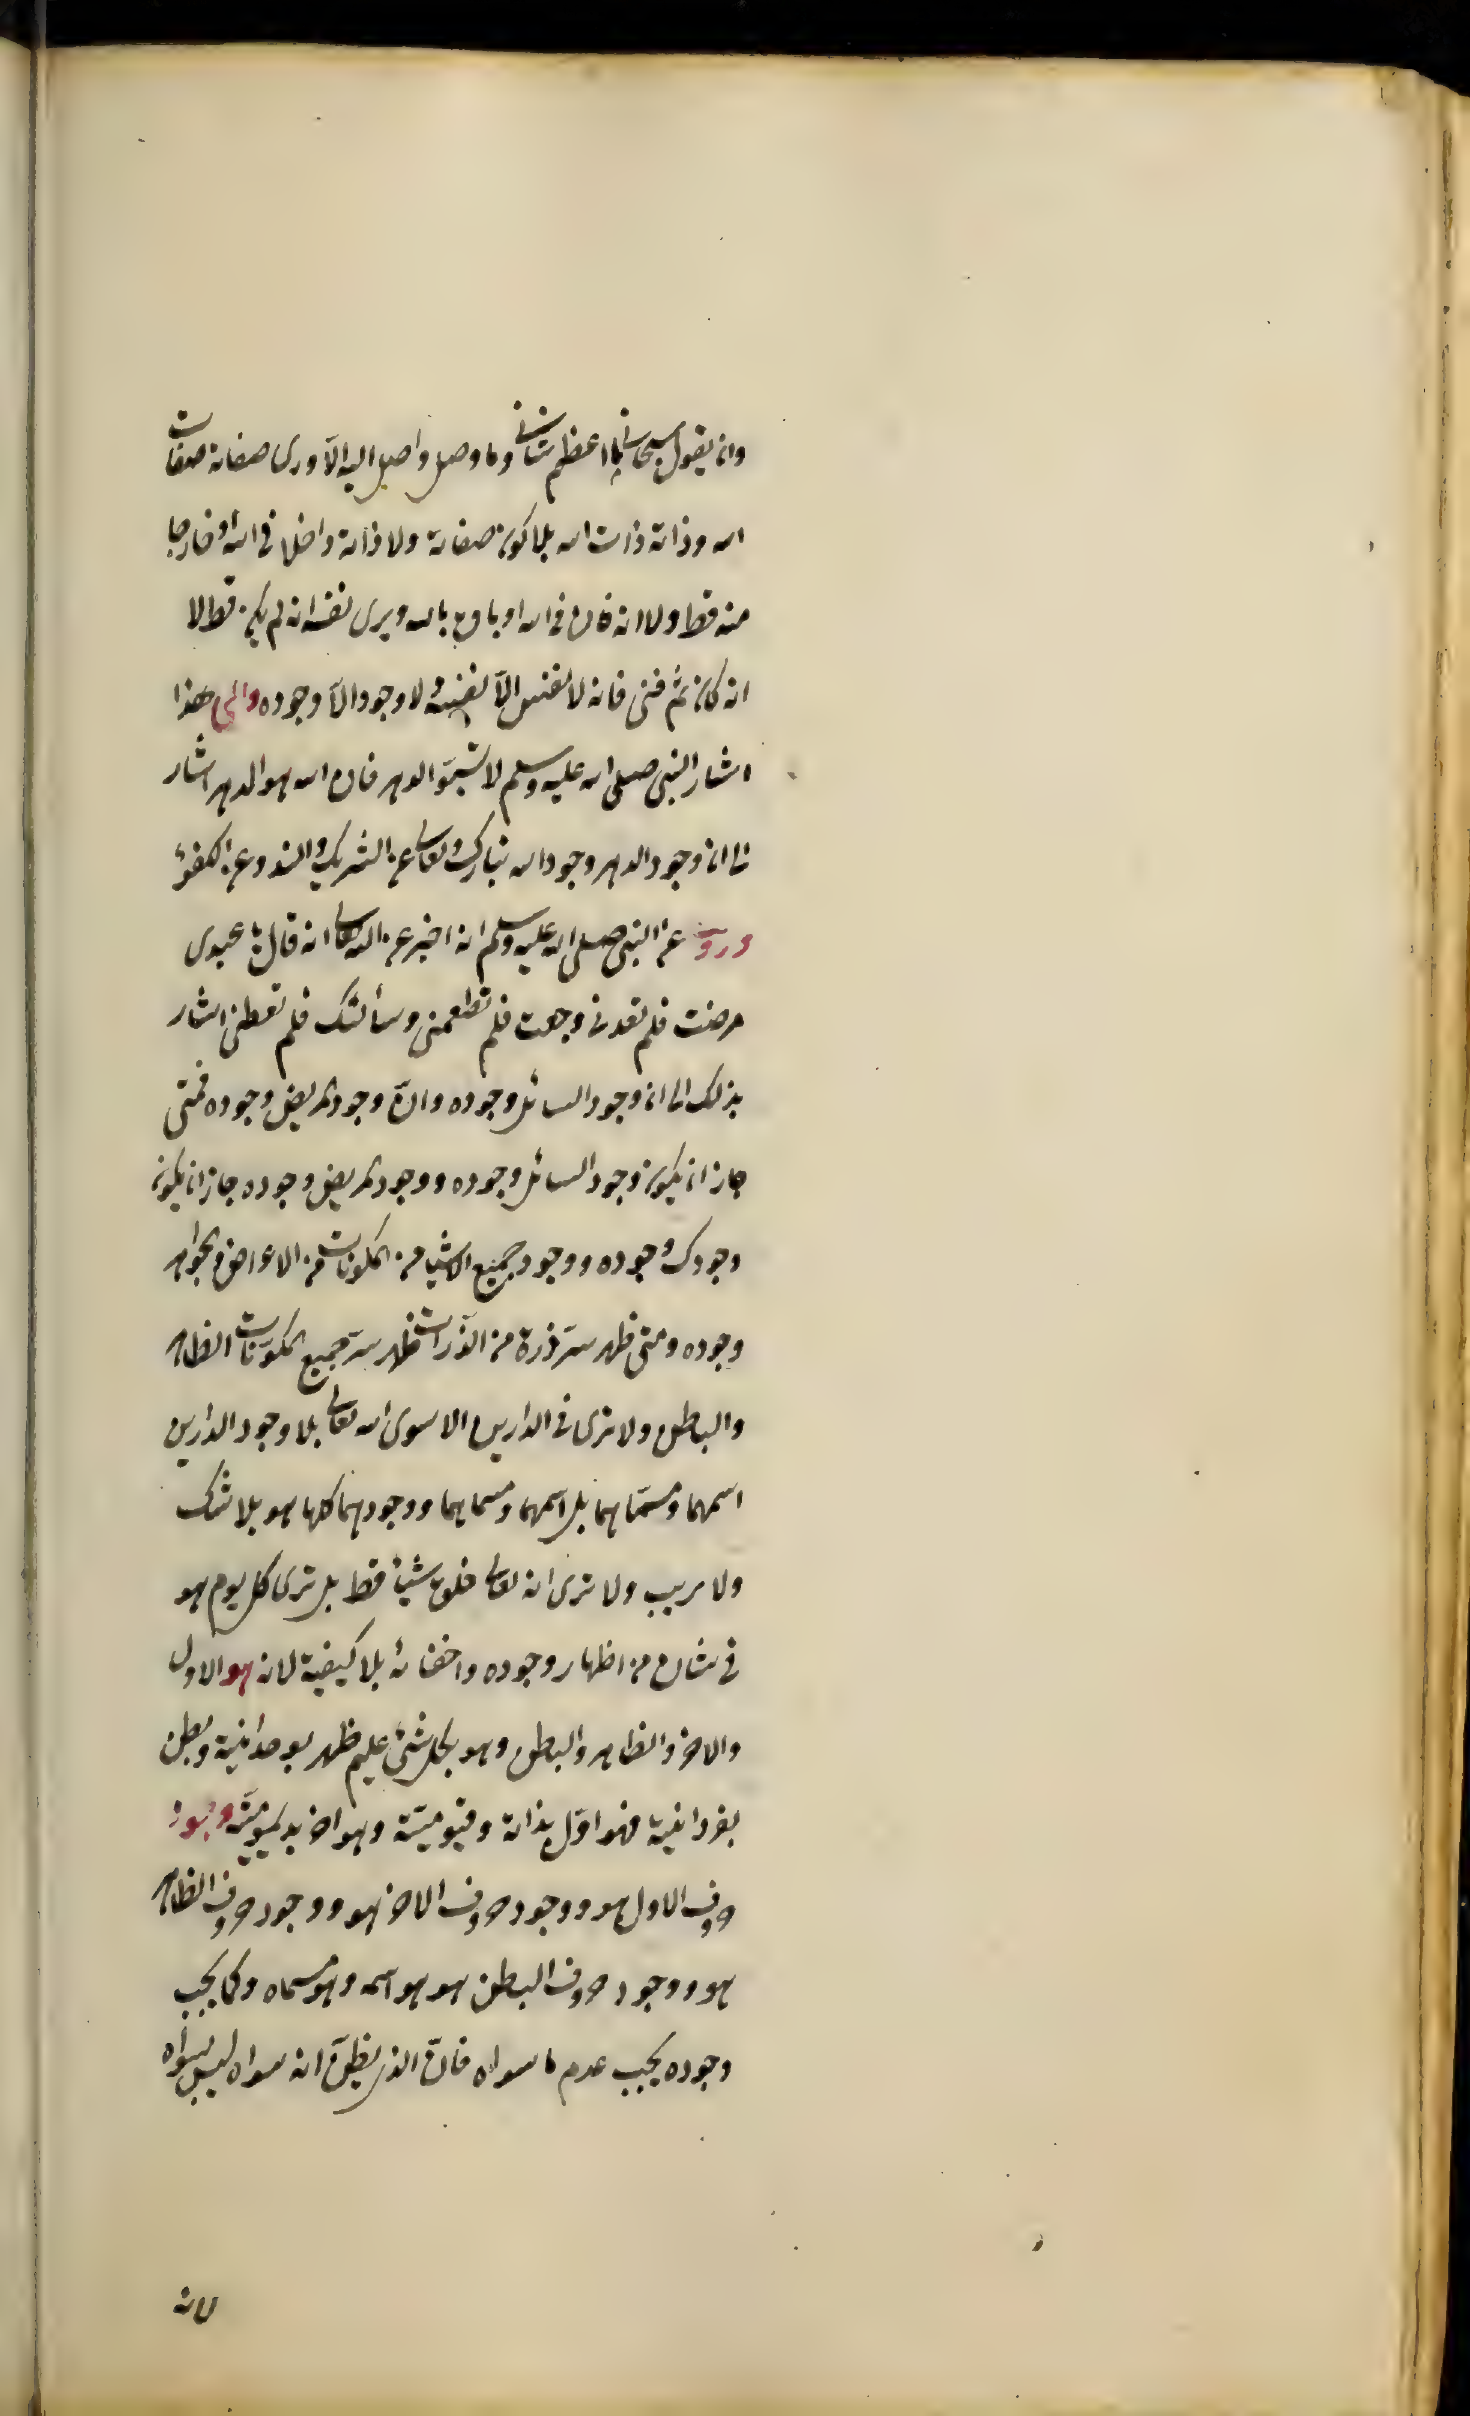 وان يقول سبحاني ما اعظم شاني وما وصل واصل اليه الا ورى صفاته صفات
الله وذاته ذات الله بلا كون صفاته ولا ذاته داخلا في الله او خارجا
منه قط ولا انه فان في الله او باق بالله ويرى نفسه انه لم يكن قط لا
انه كان ثم فنى فانه لا نفس الا نفسه ولا وجود الا وجوده والى هذا
اشار النبي صلى الله عليه وسلم لا تسبوا الدهر فان الله هو الدهر اشار
الى ان وجود الدهر وجود الله تبارك وتعالى عن الشريك والند وعن الكفؤ
وروى عن النبي صلى الله عليه وسلم انه اخبر عن الله تعالى انه قال يا عبدى
مرضت فلم تعدني وجعت فلم تطعمني وسألتك فلم تعطني اشار
بذلك الى ان وجود السائل وجوده وان وجود المريض وجوده فمتى
جاز ان يكون وجود السائل وجوده ووجود المريض وجوده جاز ان يكون
وجودك وجوده ووجود جميع الاشيا من المكونات من الاعراض والجواهر
وجوده ومتى ظهر سر ذرة من الذرات ظهر سر جميع المكونات الظاهر
والباطن ولا ترى في الدارين الا سوى الله تعالى بلا وجود الدارين
اسمهما ومسماهما بل اسمهما ومسماهما ووجودهما كلها هو بلا شك
ولا ريب ولا ترى انه تعالى خلق شيأ قط بل ترى كل يوم هو
في شان من اظهار وجوده واخفائه بلا كيفية لانه هو الاول
والاخر والظاهر والباطن وهو بكل شئ عليم ظهر بوحدانيته وبطن
بفردانيته فهو اول بذاته وقيوميته وهو اخر بديموميته وجود
حروف الاول هو ووجود حروف الاخر هو ووجود حروف الظاهر
هو ووجود حروف الباطن هو هو اسمه وهو مسماه وكما يجب
وجوده يجب عدم ما سواه فان الذي يظن انه سواه ليس سواه
لانه